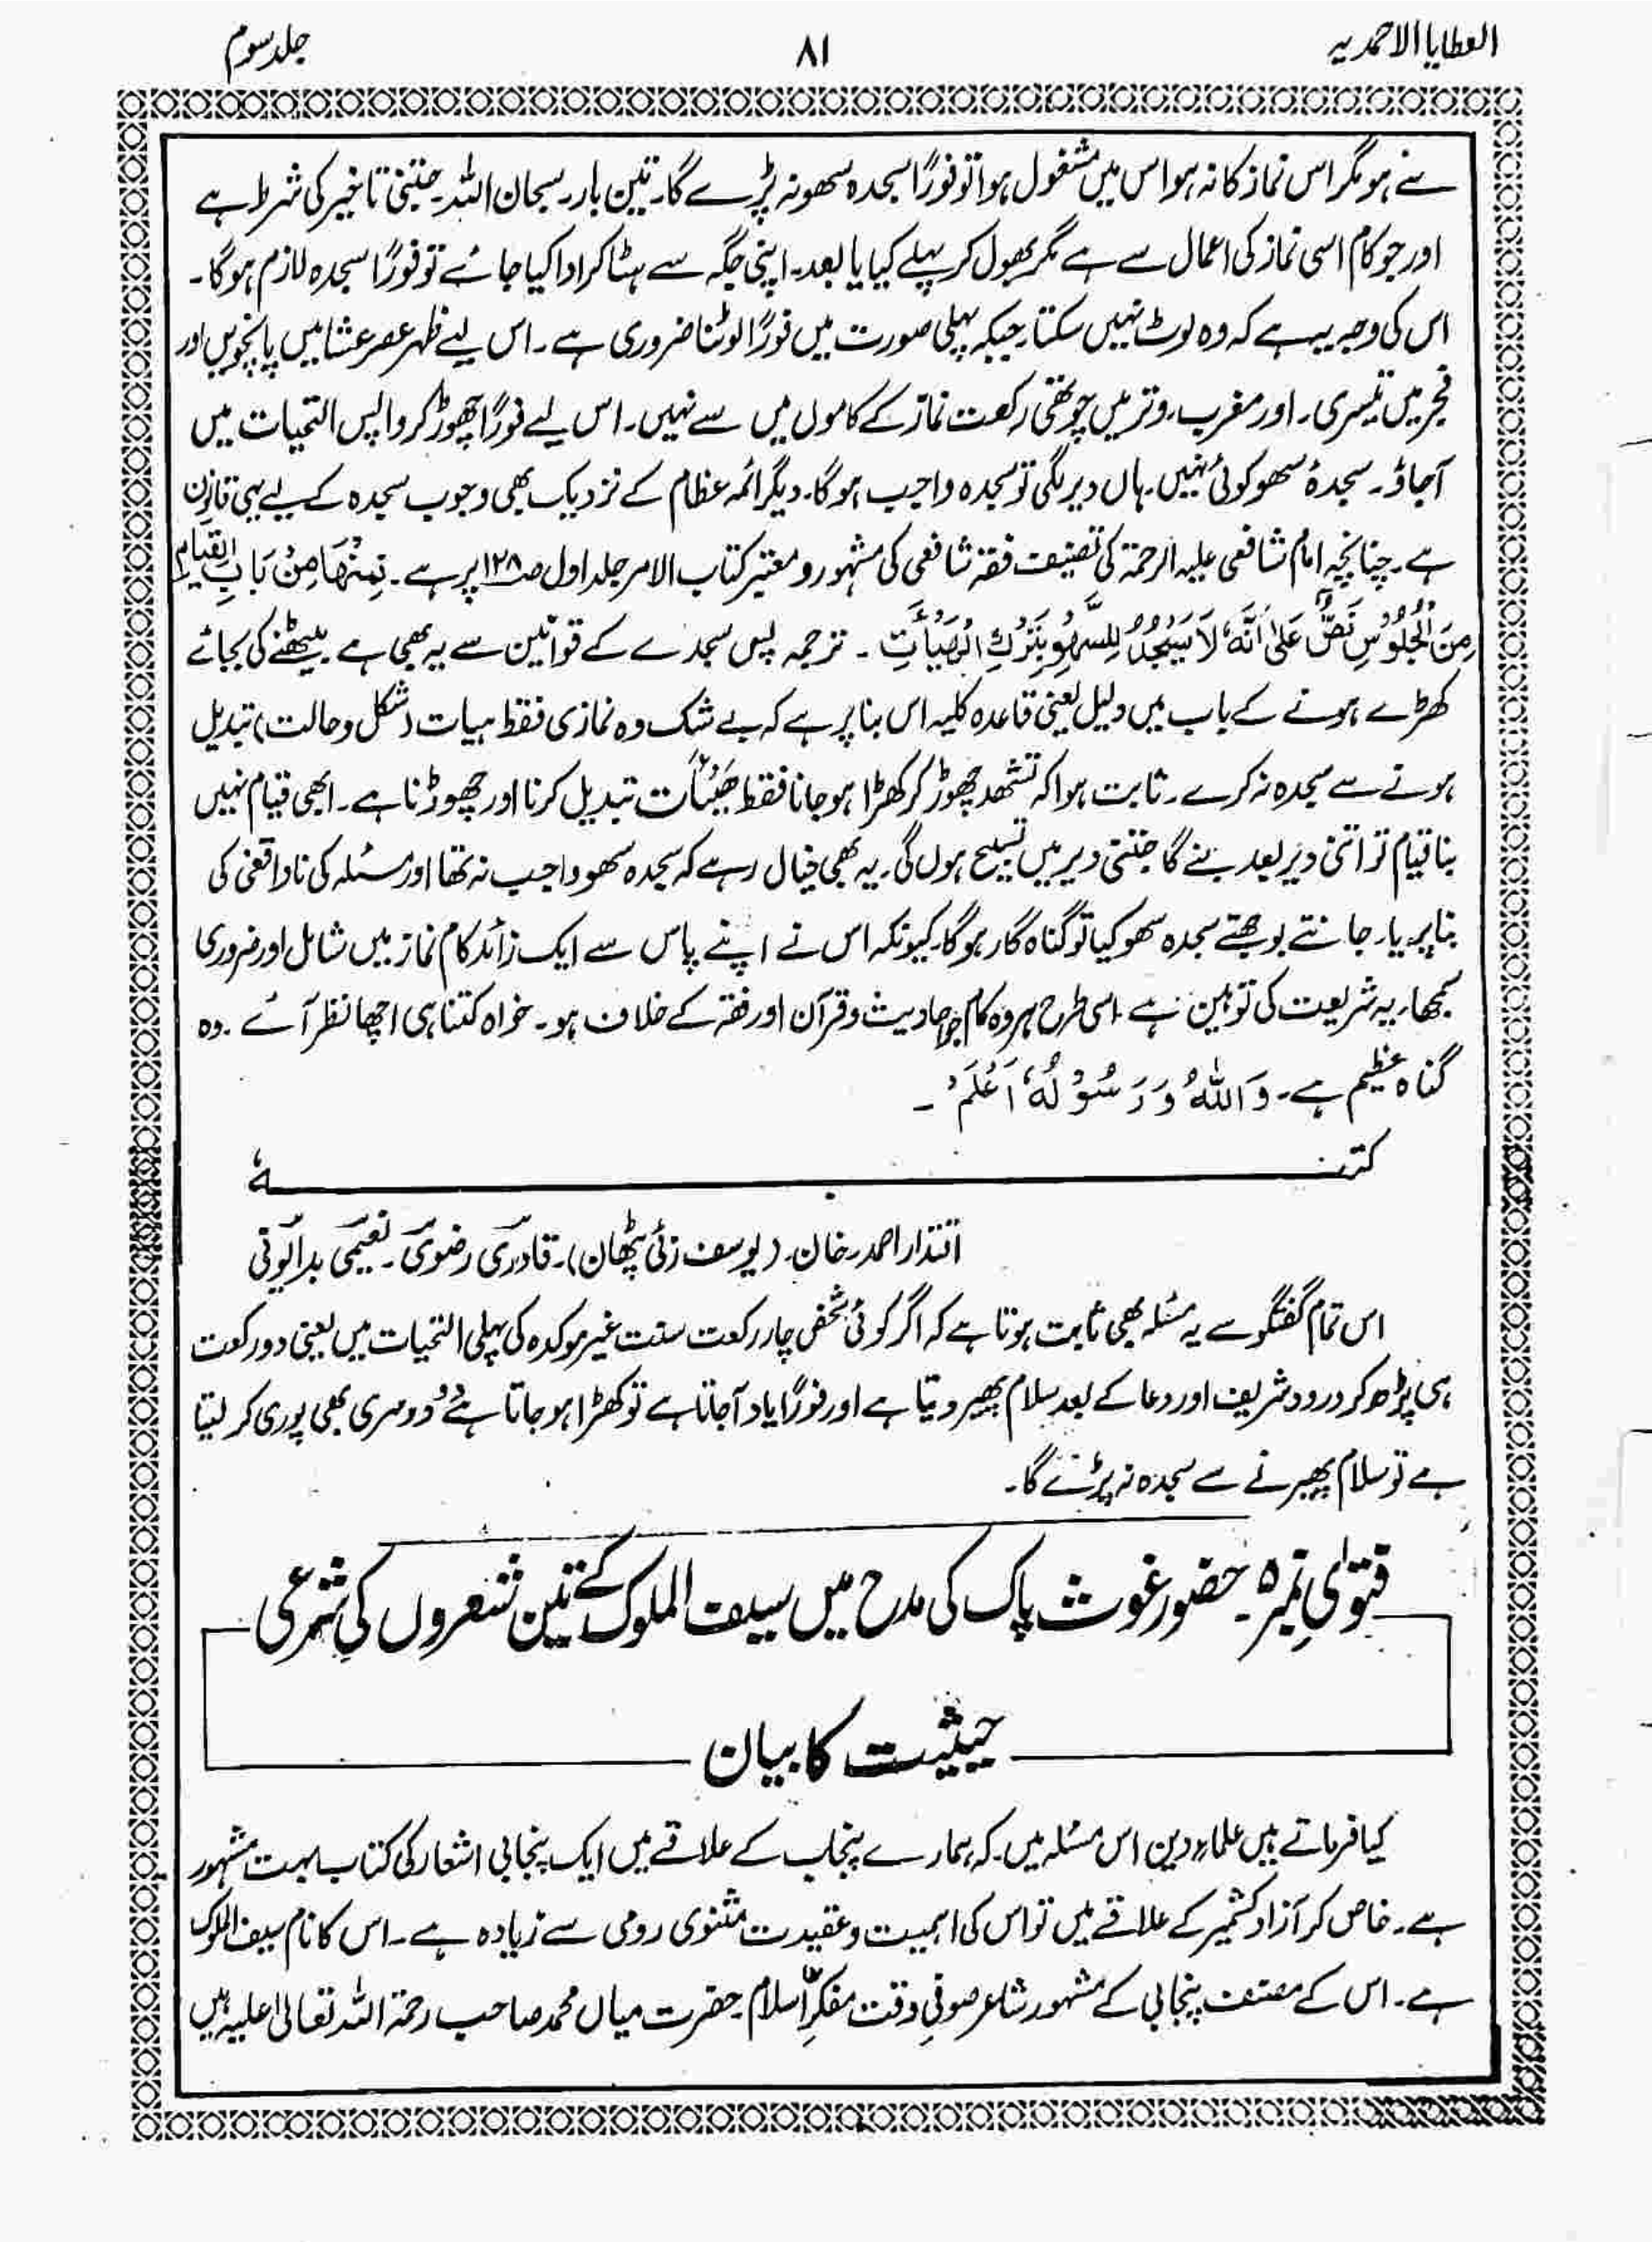 العطایا الاحمدیہ
۸۱
جلد سوم
سے ہو مگر اس نماز کا نہ ہو اس میں مشغول ہوا تو فورًا سجدہ سھو نہ پڑے گا۔ تین بار۔ سبحان اللہ۔ جتنی تاخیر کی شرط ہے
اور جو کام اسی نماز کی اعمال سے ہے مگر بھول کر پہلے کیا یا بعد۔ اپنی جگہ سے ہٹا کر ادا کیا جائے تو فورًا سجدہ لازم ہوگا۔
اس کی وجہ یہ ہے کہ وہ لوٹ نہیں سکتا جبکہ پہلی صورت میں فورًا لوٹنا ضروری ہے۔ اس لیے ظہر عصر عشا میں پانچویں اور
فجر میں تیسری۔ اور مغرب۔ وتر میں چوتھی رکعت نماز کے کاموں میں سے نہیں۔ اس لیے فورًا چھوڑ کر واپس التحیات میں
آجاؤ۔ سجدۂ سھو کوئی نہیں۔ ہاں دیر لگی تو سجدہ واجب ہوگا۔ دیگر ائمہ عظام کے نزدیک بھی وجوب سجدہ کے لیے یہی قانون
ہے۔ چنانچہ امام شافعی علیہ الرحمۃ کی تصنیف فقہ شافعی کی مشہور و معتبر کتاب الامر جلد اول صـ۱۲۸ پر ہے۔ فَمِنْهَا مِنْ بَابِ الْقِیَامِ
مِنَ الْجُلُوْسِ نَصٌّ عَلیٰ اَنَّهٗ لَا یَسْجُدُ لِلسَّهْوِ بِتَرْكِ الْهَیْأَتِ ۔ ترجمہ پس سجدے کے قوانین سے یہ بھی ہے بیٹھنے کی بجائے
کھڑے ہونے کے باب میں دلیل یعنی قاعدہ کلیہ اس بنا پر ہے کہ بے شک وہ نمازی فقط ہیات (شکل و حالت) تبدیل
ہونے سے سجدہ نہ کرے۔ ثابت ہوا کہ تشھد چھوڑ کر کھڑا ہو جانا فقط ھَیْئَات تبدیل کرنا اور چھوڑنا ہے۔ ابھی قیام نہیں
بنا قیام تو اتنی دیر بعد بنے گا جتنی دیر میں تسبیح ہوں گی۔ یہ بھی خیال رہے کہ سجدہ سھو واجب نہ تھا اور مسئلہ کی ناواقفی کی
بنا پر یا۔ جانتے بوجھتے سجدہ سھو کیا تو گناہ گار ہوگا۔ کیونکہ اس نے اپنے پاس سے ایک زائد کام نماز میں شامل اور ضروری
سمجھا۔ یہ شریعت کی توہین ہے۔ اسی طرح ہر وہ کام جو احادیث و قرآن اور فقہ کے خلاف ہو۔ خواہ کتنا ہی اچھا نظر آئے۔ وہ
گناہ عظیم ہے۔ وَاللّٰهُ وَرَسُوْلُهٗ اَعْلَمْ ۔
کتبـــــــہٗ
اقتدار احمد۔ خان۔ (یوسف زئی پٹھان)۔ قادری رضوی۔ نعیمی بدایونی
اس تمام گفتگو سے یہ مسئلہ بھی ثابت ہوتا ہے کہ اگر کوئی شخص چار رکعت سنت غیر موکدہ کی پہلی التحیات میں یعنی دو رکعت
ہی پڑھ کر درود شریف اور دعا کے بعد سلام پھیر دیتا ہے اور فورًا یاد آجاتا ہے تو کھڑا ہو جاتا ہے دوسری بھی پوری کر لیتا
ہے تو سلام پھیرنے سے سجدہ نہ پڑے گا۔
فتویٰ نمبر ۵۔ حضور غوث پاک کی مدح میں سیف الملوک کے تین شعروں کی شرعی
حیثیت کا بیان
کیا فرماتے ہیں علماءِ دین اس مسئلہ میں۔ کہ ہمارے پنجاب کے علاقے میں ایک پنجابی اشعار کی کتاب بہت مشہور
ہے۔ خاص کر آزاد کشمیر کے علاقے میں تو اس کی اہمیت و عقیدت مثنوی رومی سے زیادہ ہے۔ اس کا نام سیف الملوک
ہے۔ اس کے مصنف پنجابی کے مشہور شاعر صوفیِ وقت مفکرِ اسلام۔ حضرت میاں محمد صاحب رحمۃ اللہ تعالیٰ علیہ ہیں